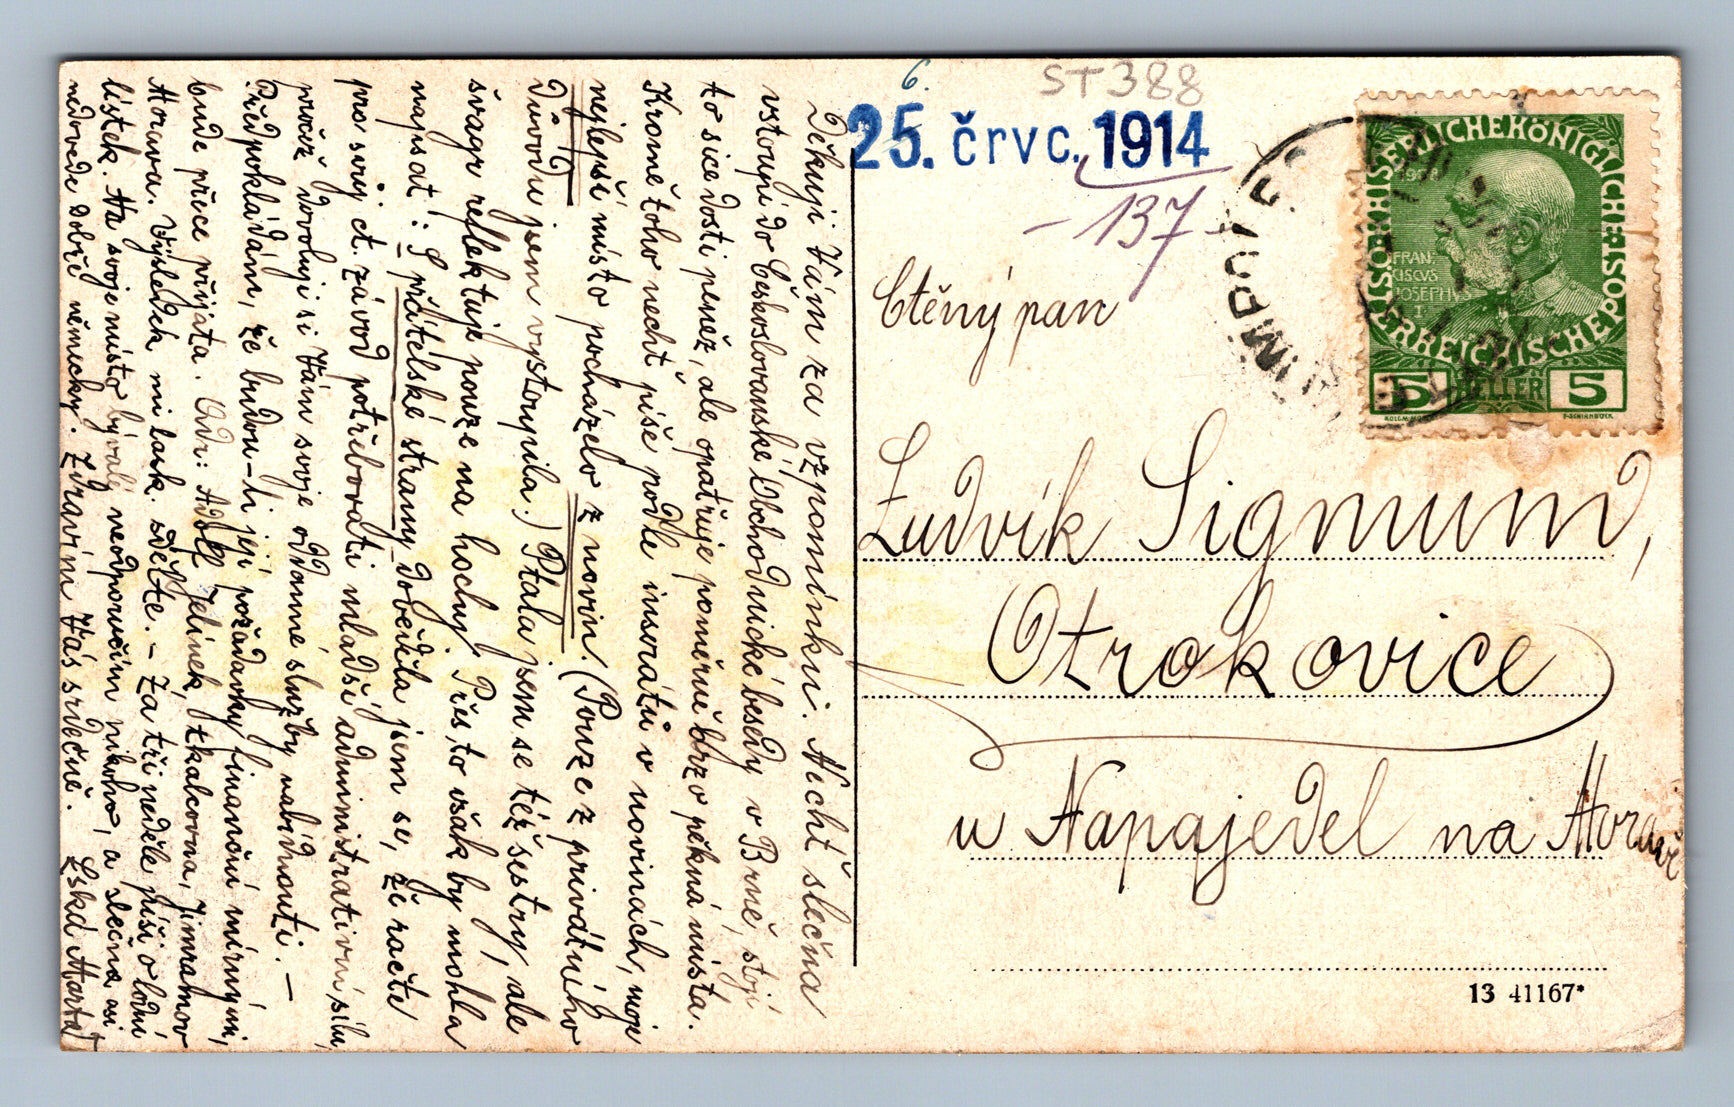 6.
ST388
25. črvc. 1914
- 137
KAISERLICHE KÖNIGLICHE
ÖSTERREICHISCHE POST
1908
FRAN-
CISCVS
IOSEPHVS
I
5 HELLER 5
Ctěný pan
Ludvík Sigmund,
Otrokovice
u Napajedel na Moravě
13 41167*
Děkuji Vám za vzpomínku. Nechť slečna
vstoupí do Českoslovanské Obchodnické besedy v Brně, stojí
to sice dosti peněz, ale opatřuje poměrně brzo pěkná místa.
Kromě toho nechť píše podle inserátů v novinách, moje
nejlepší místo pocházelo z novin. (Pouze z privátního
důvodu jsem vystoupila.) Ptala jsem se též sestry, ale
švagr reflektuje pouze na hochy. Přes to však by mohla
napsat: S přátelské strany dověděla jsem se, že račte
pro svůj ct. závod potřebovati mladší administrativní sílu,
pročež dovoluji si Vám svoje oddanné služby nabídnouti. —
Předpokládám, že budou-li její požadavky finanční mírnými,
bude přece přijata. Adr: Adolf Jelínek, tkalcovna, Jimramov
Morava. Výsledek mi lask. sdělte. - Za tři neděle píši o lodní
lístek. Na svoje místo bývalé neodporučím nikoho, a slečna asi
nedovede dobře německy. Zdravím Vás srdečně.